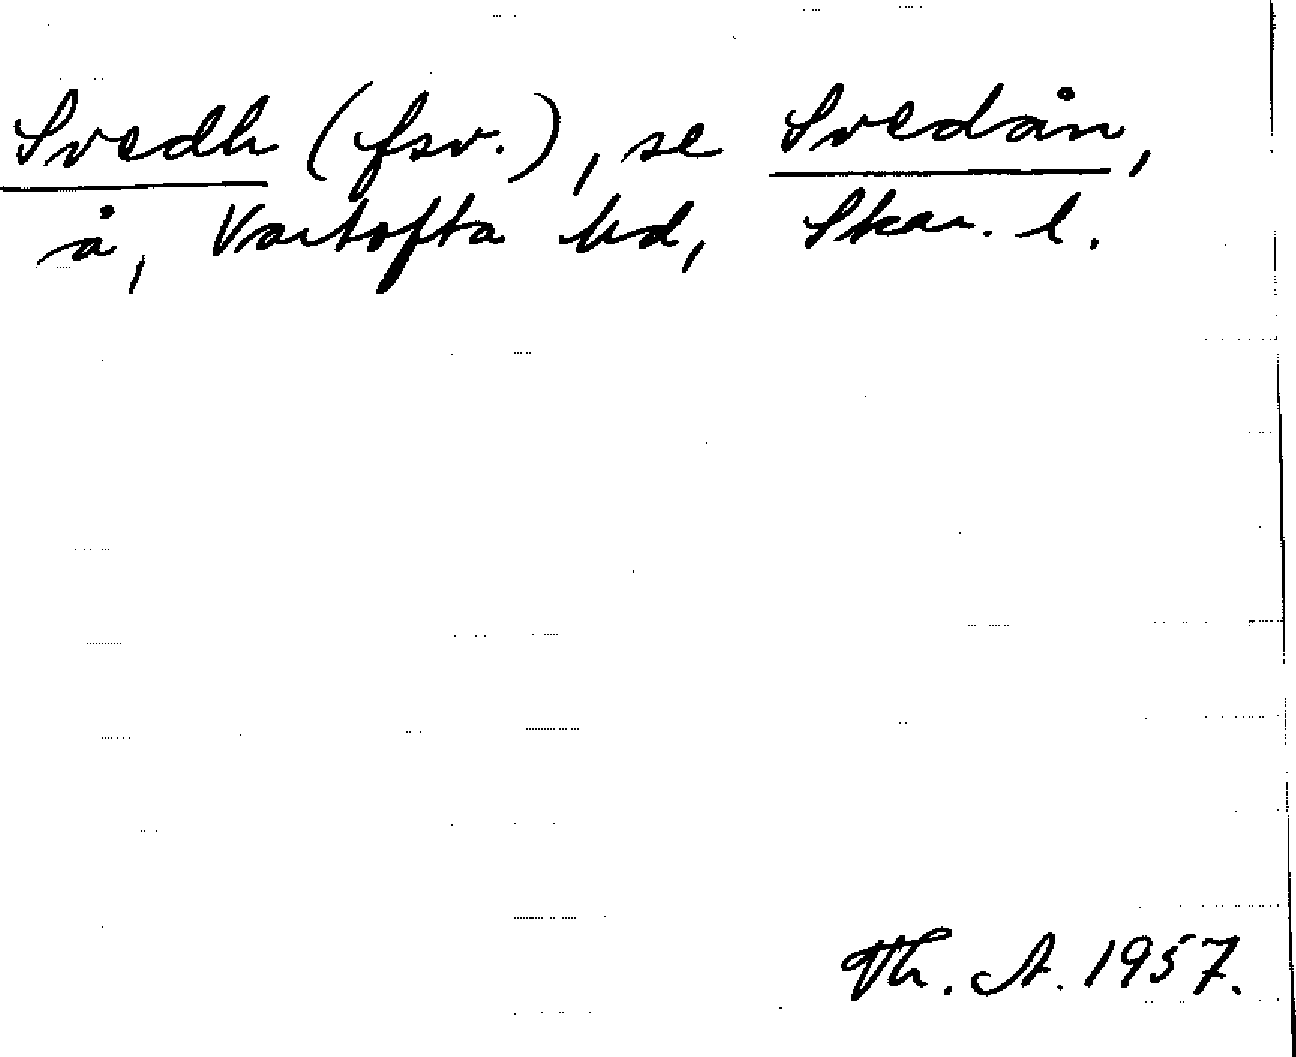 Svedh (fsv.), se Svedån,
å, Vartofta hd, Skar. l.
Th. A. 1957.